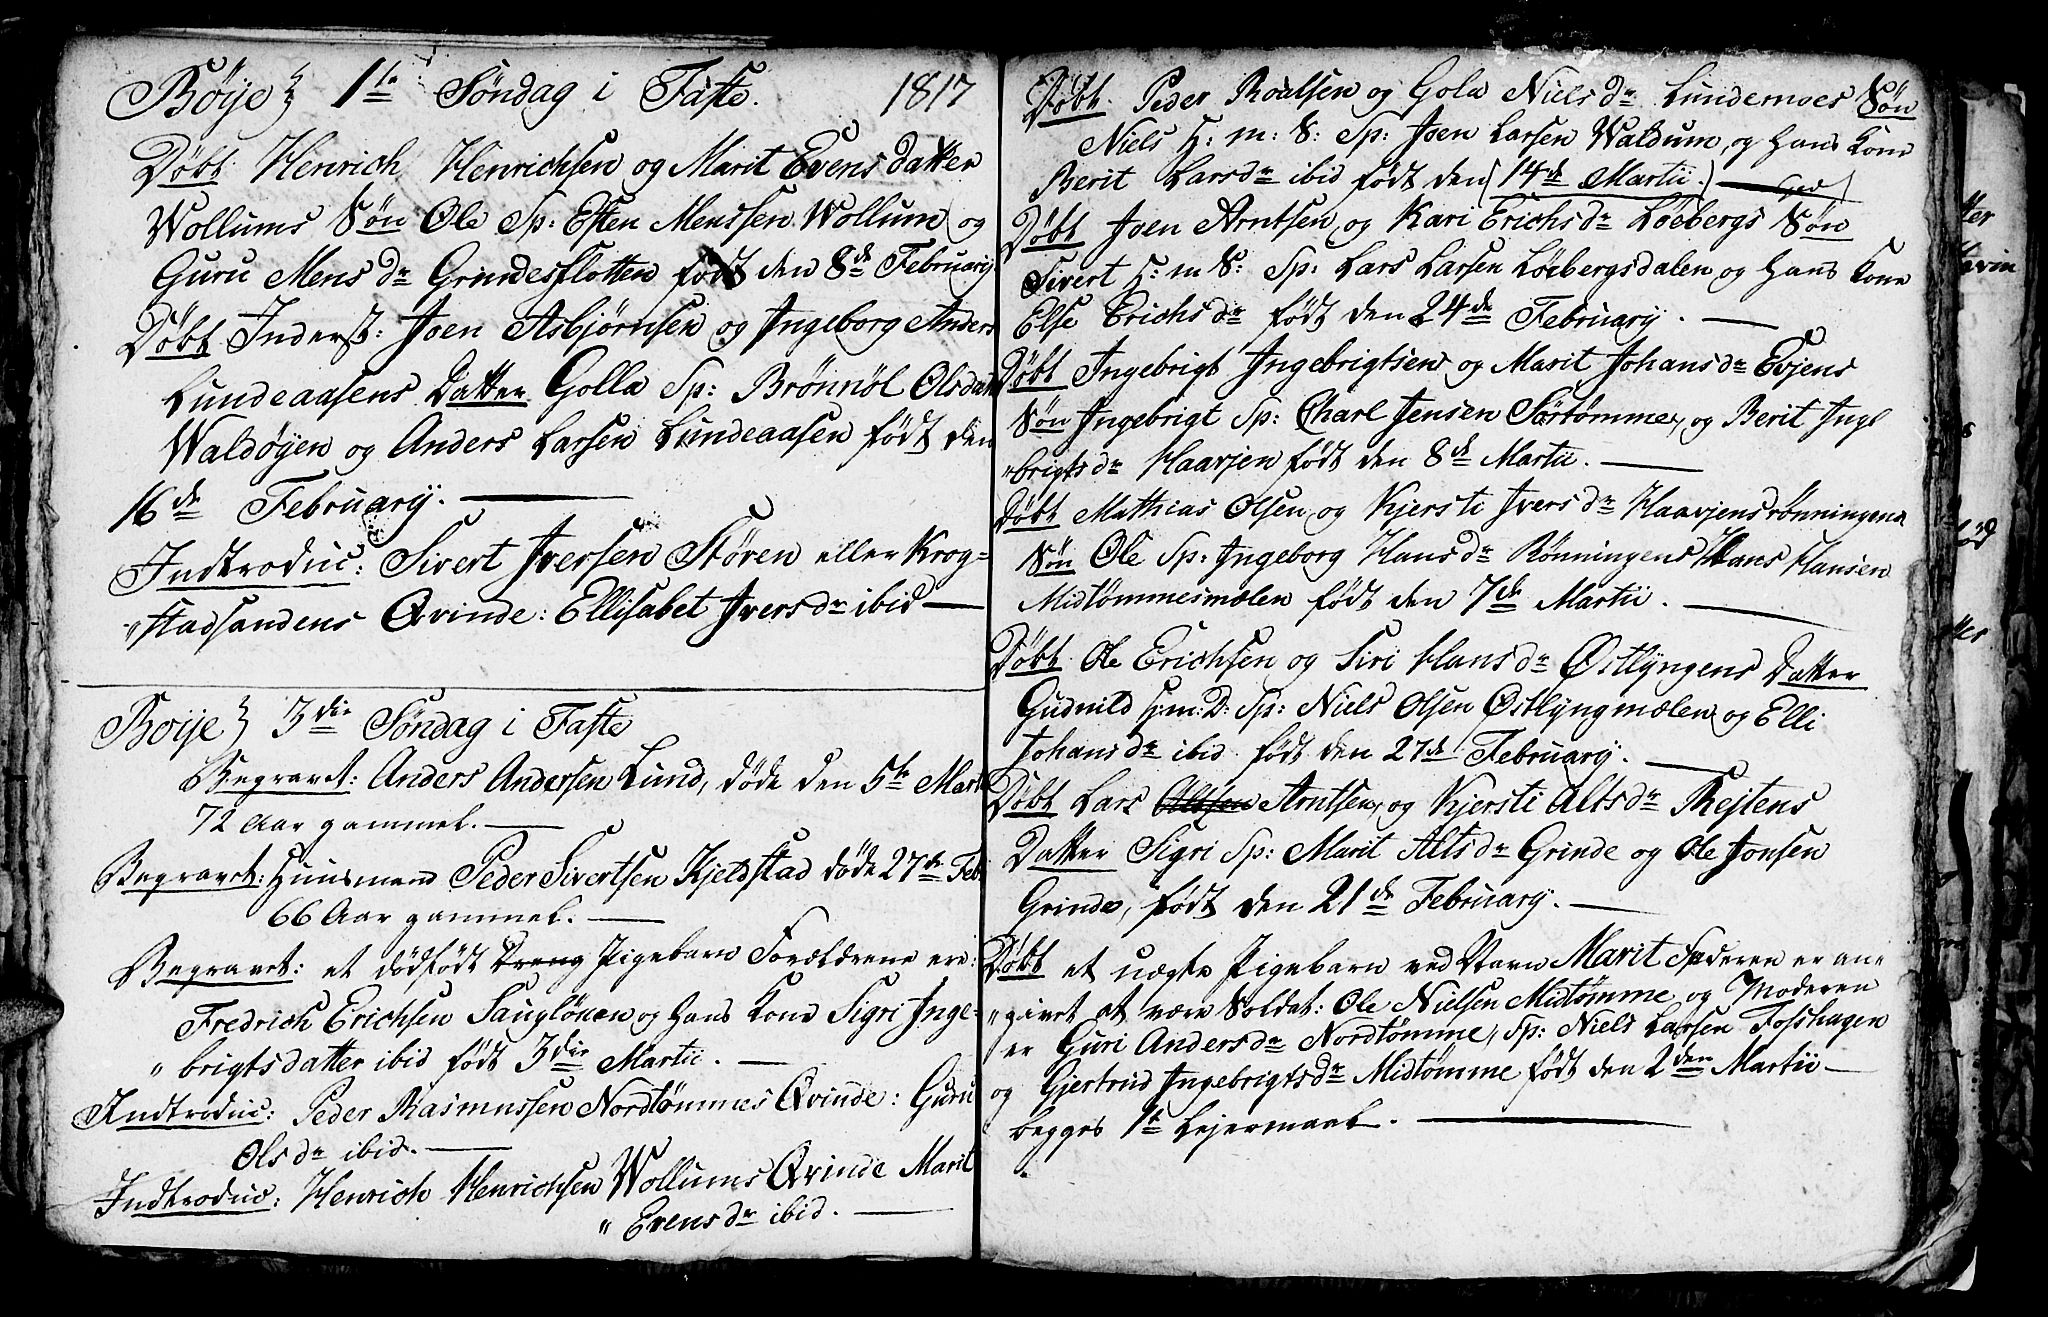 Böije 1te Söndag i Faste. 1817
Döbt Henrich Henrichsen og Marit Evens datter
Wollums Sön Ole Sp: Esten Menssen Wollum og
Guru Mens dr Grindesflotten født den 8de February
Döbt Inderst: Joen Asbjørnsen og Ingeborg Anders
Lundeaasens Datter Golla Sp: Brönnöl Olsdatt
Waldöyen og Anders Larsen Lundeaasen født den
16de February.
Indtroduc: Sivert Iversen Stören eller Krog=
"stadsandens Qvinde: Ellisabet Ivers dr ibid
Böije 3die Söndag i Faste
Begravet: Anders Andersen Lund, døde den 5te Marti
72 Aar gammel.
Begravet: Huusmand Peder Sivertsen Kjeldstad døde 27de Feb:
66 Aar gammel.
Begravet: et dödfödt Dreng Pigebarn Forældrene ere:
Fredrich Erichsen Saugløkken og Hans Kone Sigri Inge=
"brigtsdatter ibid født 3die Martii.
Indtroduc: Peder Rasmussen Nordtömmes Qvinde: Guru
Ols dr ibid.
Indtroduc: Henrich Henrichsen Wollums Qvinde Marit
" Evens dr ibid.
Döbt. Peder Roalsen og Gola Niels dr Lundemoes Sön
Niels H: m: S: Sp: Joen Larsen Waldum, og Hans Kone
Berit Lars dr ibid født den 14de Martii.
Döbt Joen Arntsen, og Kari Erichs dr Löebergs Sön
Sivert H: m S: Sp: Lars Larsen Löebergsdalen og Hans Kone
Else Erichs dr født den 24de February.
Döbt Ingebrigt Ingebrigtsen og Marit Johans dr Evjens
Sön Ingebrigt Sp: Charl Jensen Sörtömme, og Berit Inge
"brigts dr Haavjen født den 8de Martii.
Döbt Mathias Olsen, og Kjersti Ivers dr Haavjensrönningens
Sön Ole Sp: Ingeborg Hans dr Rönningens Hans Hansen
Midtömmesmælen født den 7de Martii.
Döbt Ole Erichsen og Siri Hans dr Östlÿngens Datter
Gudnild H:m: D: Sp: Niels Olsen Östlÿngmælen og Elli
Johans dr ibid født den 27de February.
Döbt Lars Arntsen, og Kjersti Alts dr Rejtens
Datter Sigri Sp: Marit Alts dr Grinde og Ole Jonsen
Grinde, født den 21de February.
Döbt et uægte Pigebarn ved Navn Marit Faderen er an=
"givet at være Soldat: Ole Nielsen Midtömme, og Moderen
er Guri Anders dr Nordtömme, Sp: Niels Larsen Fosshagen
og Gjertrud Ingebrigts dr Midtömme født den 2den Martii
begges 1te Lejermaal.